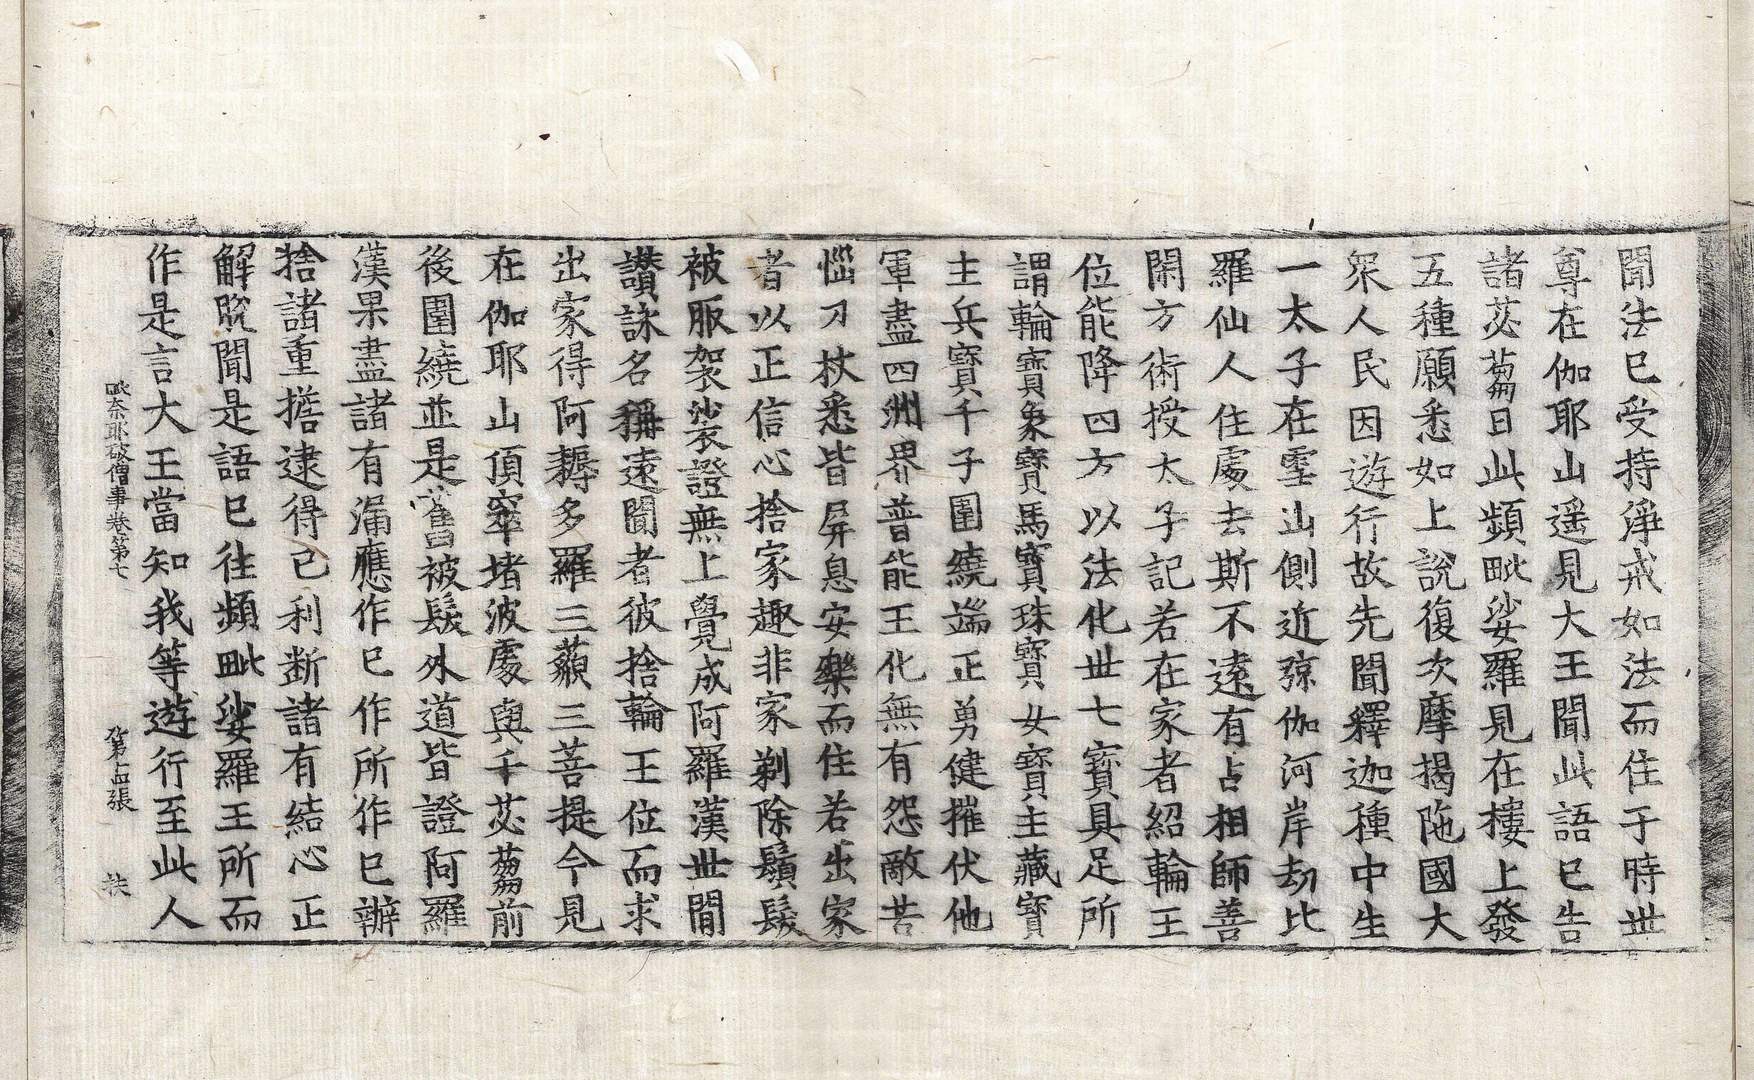 聞法已受持淨戒如法而住于時世
尊在伽耶山遥見大王聞此語已告
諸苾蒭曰此頻毗娑羅見在樓上發
五種願悉如上說復次摩揭陁國大
衆人民因遊行故先聞釋迦種中生
一太子在雪山側近弶伽河岸劫比
羅仙人住處去斯不遠有占相師善
閑方術授太子記若在家者紹輪王
位能降四方以法化世七寶具足所
謂輪寶象寶馬寶珠寶女寶主藏寶
主兵寶千子圍繞端正勇健摧伏他
軍盡四洲界普能王化無有怨敵苦
惱刀杖悉皆屏息安樂而住若出家
者以正信心捨家趣非家剃除鬚髮
被服袈裟證無上覺成阿羅漢世間
讚詠名稱遠聞者彼捨輪王位而求
出家得阿耨多羅三藐三菩提今見
在伽耶山頂窣堵波處與千苾蒭前
後圍繞並是舊被髮外道皆證阿羅
漢果盡諸有漏應作已作所作已辦
捨諸重擔逮得己利断諸有結心正
解脫聞是語已往頻毗娑羅王所而
作是言大王當知我等遊行至此人
毗奈耶破僧事卷第七　第十四張　扶